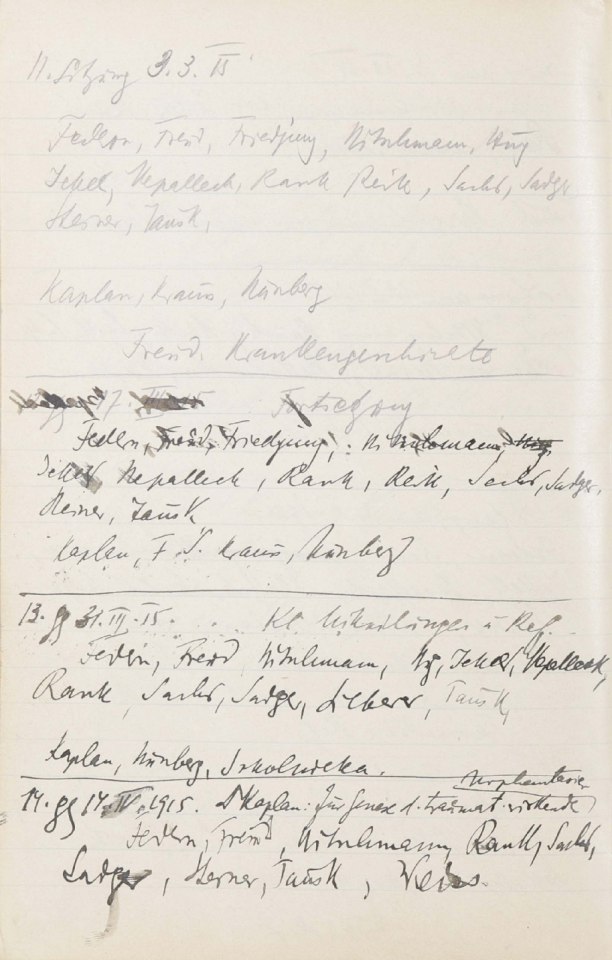 11. Sitzung 3.3.15
Federn, Freud, Friedjung, Hitschmann, Hug
Jekels, Nepalleck, Rank Reik, Sachs, Sadger
Steiner, Tausk,
Kaplan, Kraus, Nünberg
Freud. Krankengeschichte
17. III. 15 Fortsetzung
Federn, Freud, Friedjung, Hitschmann, Hug,
Jekels Nepalleck, Rank, Reik, Sachs, Sadger,
Steiner, Tausk
Kaplan, F. S. Kraus, Nünberg
13. 31.III.15. Kl. Mitteilungen u Ref.
Federn, Freud Hitschmann, Hug, Jekels, Nepalleck,
Rank Sachs, Sadger, Silberer, Tausk,
Kaplan, Nünberg, Sokolnicka.
14. 14.IV.1915. Kaplan: Zur Genese d. traumat. wirkende
Urphantasien
Federn, Freud, Hitschmann, Rank, Sachs,
Sadger, Steiner, Tausk, Weiss.